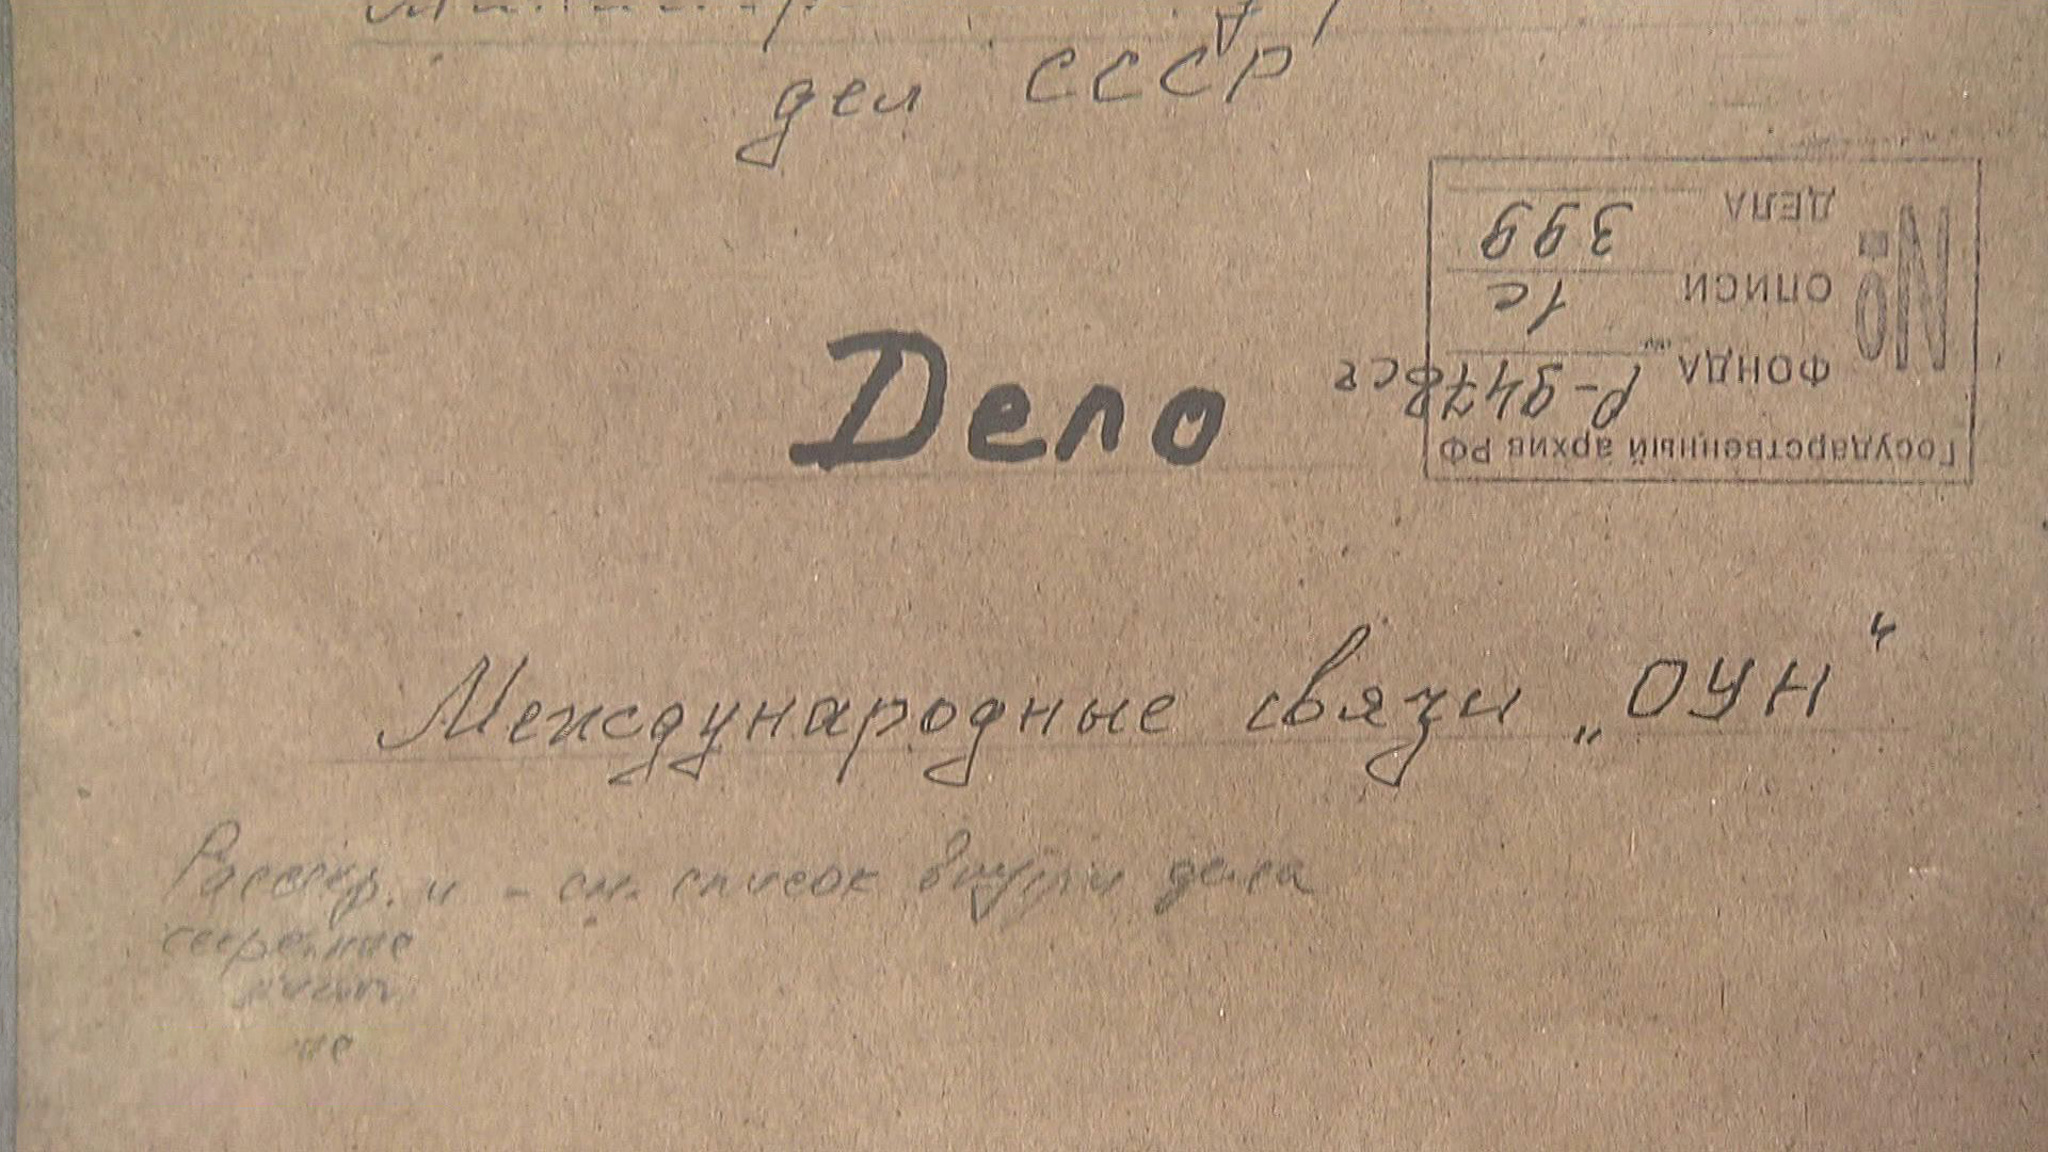 дел СССР
Дело
Государственный архив РФ
ФОНДА Р-9478сч
ОПИСИ 1с
№
ДЕЛА 399
Международные связи „ОУН“
Рассекр. и - см. список внутри дела
секретные